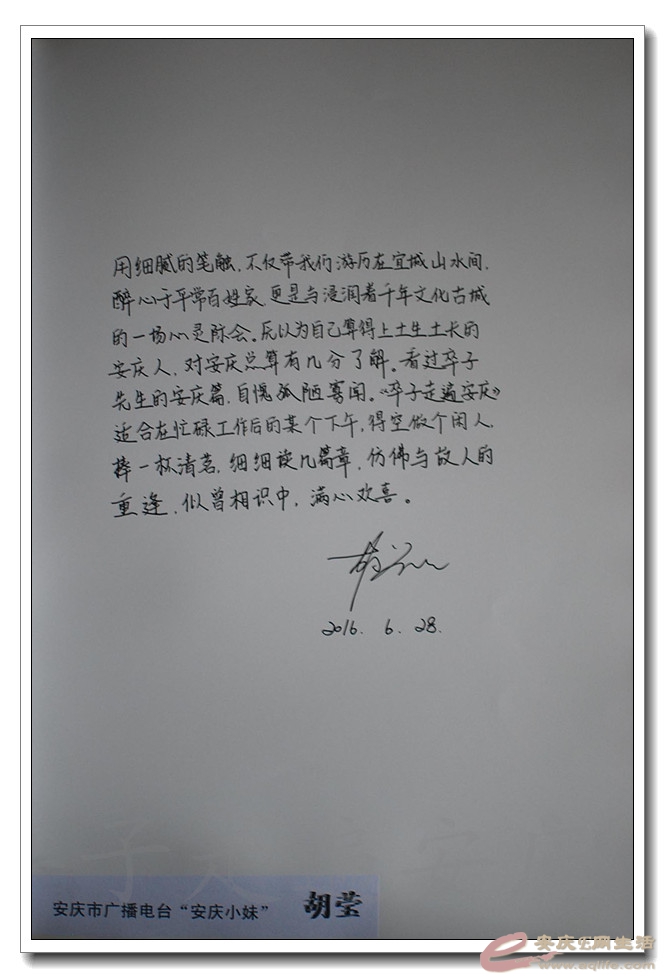 用细腻的笔触，不仅带我们游历在宜城山水间，
醉心于平常百姓家，更是与浸润着千年文化古城
的一场心灵际会。原以为自己算得上土生土长的
安庆人，对安庆总算有几分了解。看过卒子
先生的安庆篇，自愧孤陋寡闻。《卒子走遍安庆》
适合在忙碌工作后的某个下午，得空做个闲人，
捧一杯清茗，细细读几篇章，仿佛与故人的
重逢，似曾相识中，满心欢喜。
2016. 6. 28.
安庆市广播电台“安庆小妹” 胡莹
安庆E网生活
www.aqlife.com